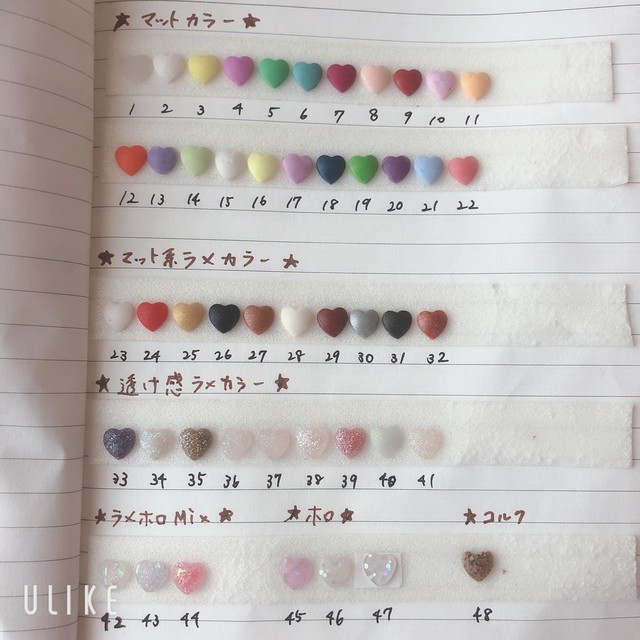 ★ マットカラー ★
1 2 3 4 5 6 7 8 9 10 11
12 13 14 15 16 17 18 19 20 21 22
★ マット系ラメカラー ★
23 24 25 26 27 28 29 30 31 32
★ 透け感ラメカラー ★
33 34 35 36 37 38 39 40 41
★ラメホロMix★ ★ホロ★ ★コルク
42 43 44 45 46 47 48
ULIKE